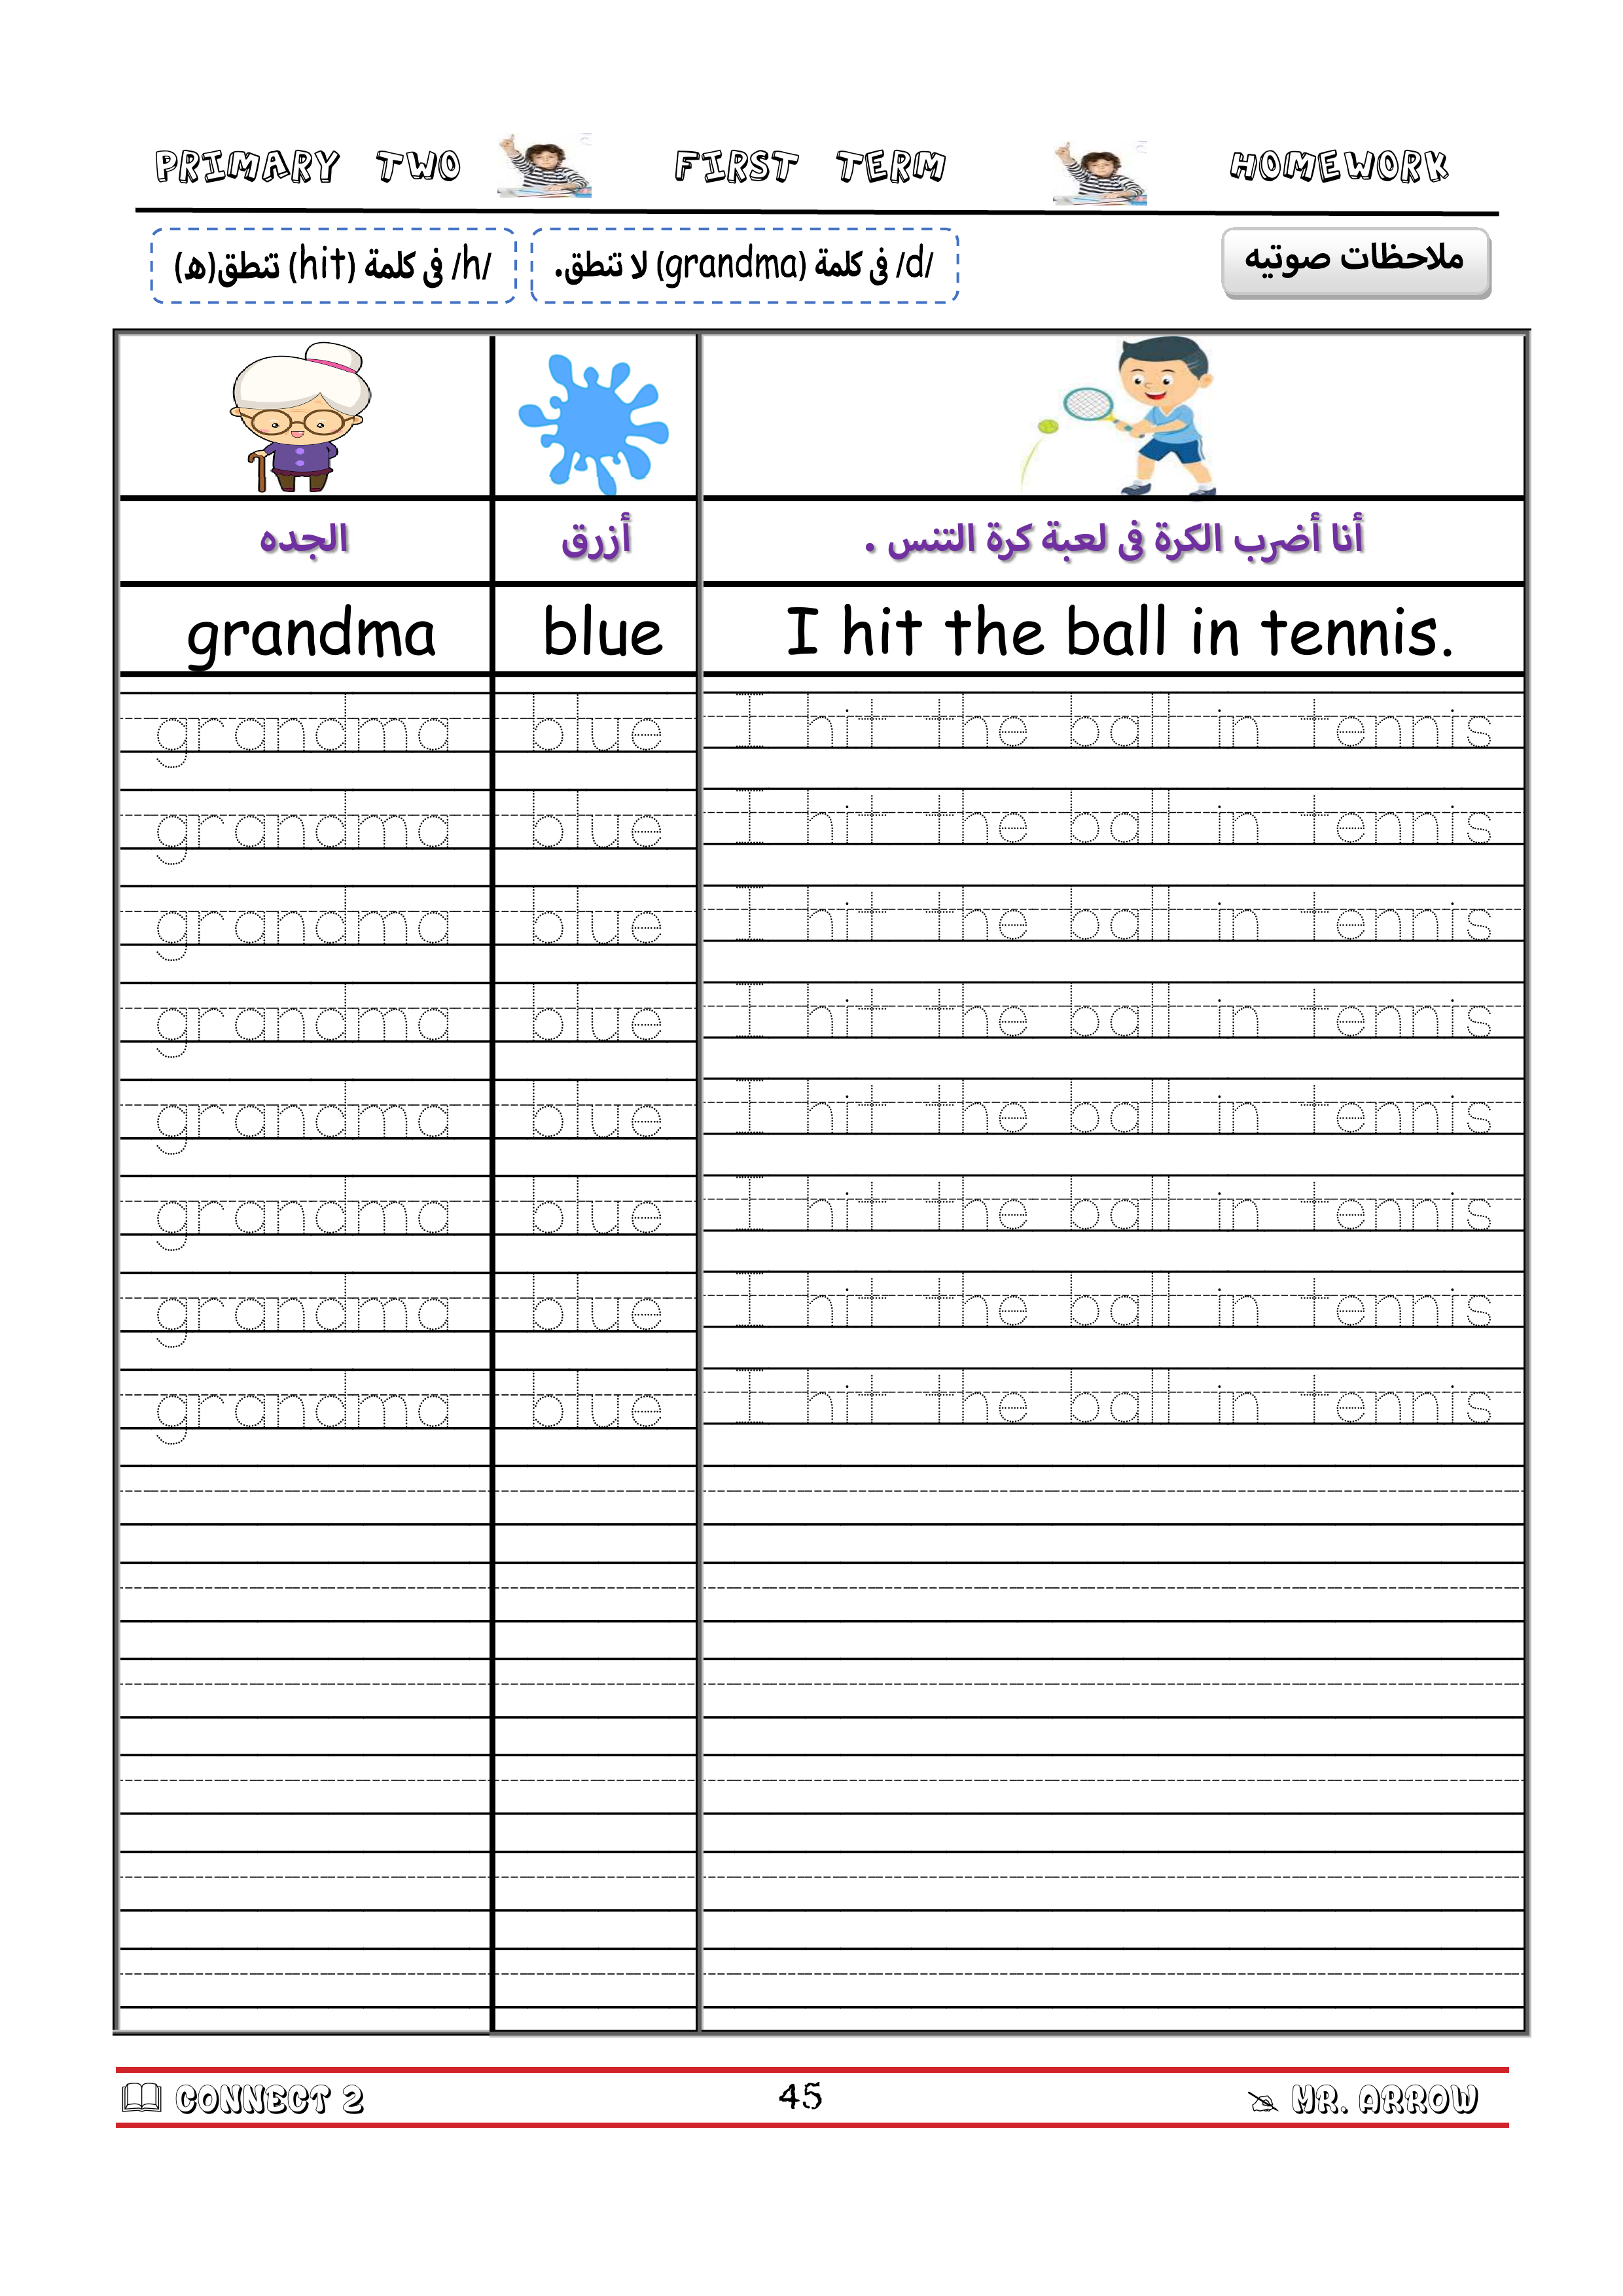 PRIMARY TWO FIRST TERM HOMEWORK
ملاحظات صوتيه
/d/ فى كلمة (grandma) لا تنطق.
/h/ فى كلمة (hit) تنطق(ھ)
الجده أزرق أنا أضرب الكرة فى لعبة كرة التنس .
grandma blue I hit the ball in tennis.
grandma blue I hit the ball in tennis
grandma blue I hit the ball in tennis
grandma blue I hit the ball in tennis
grandma blue I hit the ball in tennis
grandma blue I hit the ball in tennis
grandma blue I hit the ball in tennis
grandma blue I hit the ball in tennis
grandma blue I hit the ball in tennis
CONNECT 2 45 MR. ARROW